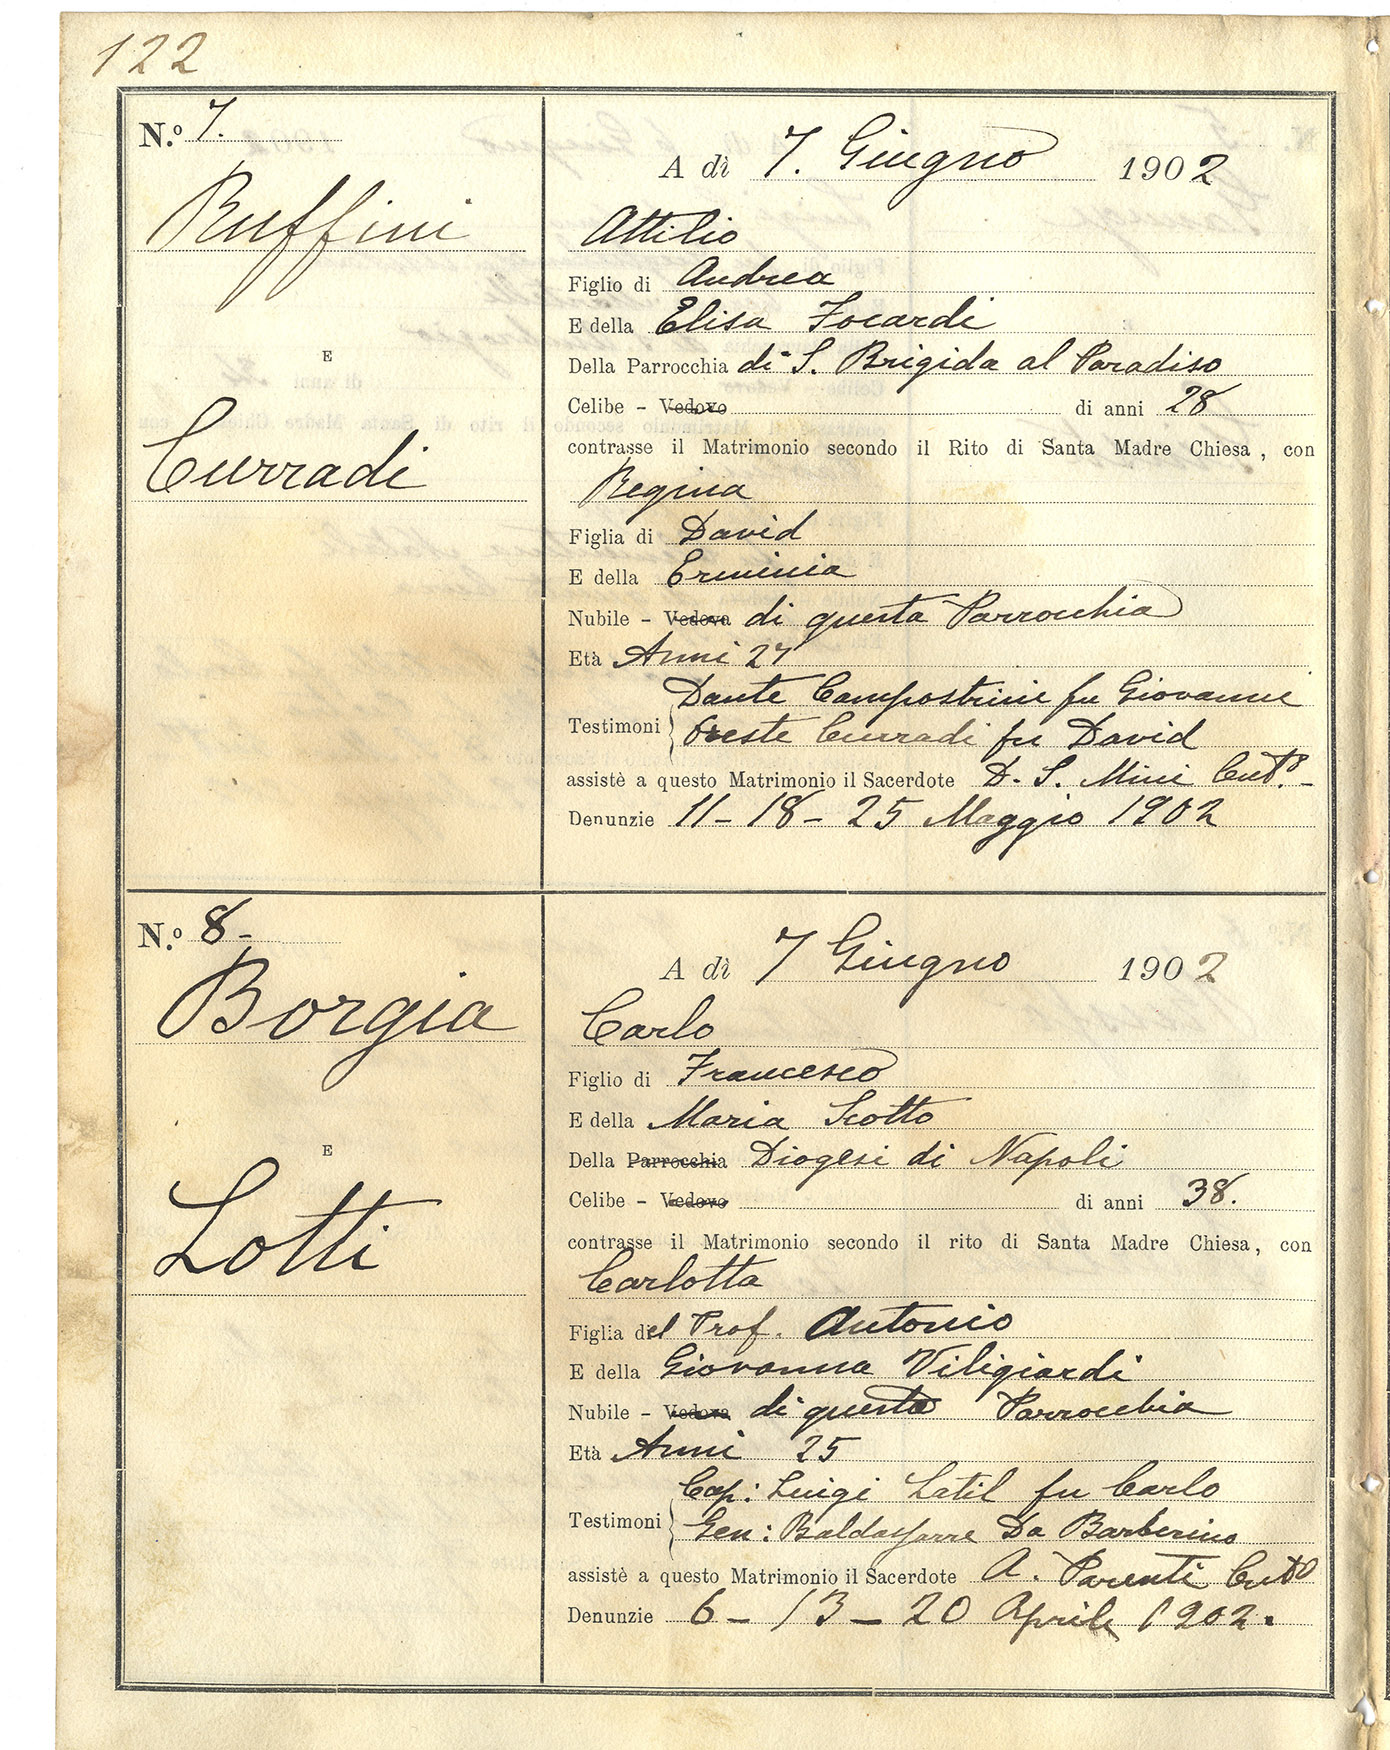 122
N.º 7.
Ruffini
E
Curradi
A dì 7. Giugno 1902
Attilio
Figlio di Andrea
E della Elisa Focardi
Della Parrocchia di S. Brigida al Paradiso
Celibe - Vedovo di anni 28
contrasse il Matrimonio secondo il Rito di Santa Madre Chiesa, con
Regina
Figlia di David
E della Erminia
Nubile - Vedova di questa Parrocchia
Età Anni 27
Dante Campostrini fu Giovanni
Testimoni Oreste Curradi fu David
assistè a questo Matrimonio il Sacerdote D. S. Mini Cut.º -
Denunzie 11 - 18 - 25 Maggio 1902
N.º 8 -
Borgia
E
Lotti
A dì 7 Giugno 1902
Carlo
Figlio di Francesco
E della Maria Scotto
Della Parrocchia Diogesi di Napoli
Celibe - Vedovo di anni 38.
contrasse il Matrimonio secondo il rito di Santa Madre Chiesa, con
Carlotta
Figlia del Prof. Antonio
E della Giovanna Viligiardi
Nubile - Vedova di questa Parrocchia
Età Anni 25
Cap: Luigi Latil fu Carlo
Testimoni Gen: Baldassarre Da Barberino
assistè a questo Matrimonio il Sacerdote A. Parenti Cutº
Denunzie 6 - 13 - 20 Aprile 1902.